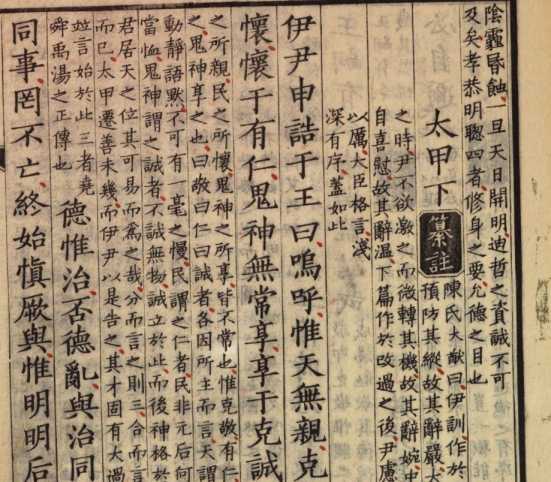 陰霾昏蝕一旦天日開明迪哲之資誠不可
及矣孝恭明聰四者修身之要允德之目也
太甲下 纂註
陳氏大猷曰伊訓作於
預防其縱故其辭嚴太
之時尹不欲激之而微轉其機故其辭婉中
自喜慰故其辭溫下篇作於改過之後尹慮
以厲大臣格言淺
深有序蓋如此
伊尹申誥于王曰嗚呼惟天無親克
懷懷于有仁鬼神無常享享于克誠
之所親民之所懷鬼神之所享皆不常也惟克敬有仁
之鬼神享之也曰敬曰仁曰誠者各因所主而言天謂
動靜語默不可有一毫之慢民謂之仁者民非元后何
當恤鬼神謂之誠者不誠無物誠立於此而後神格於
君居天之位其可易而為之哉分而言之則三合而言
而已太甲遷善未幾而伊尹以是告之其才固有大過
竝言始於此三者堯
舜禹湯之正傳也
德惟治否德亂與治同
同事罔不亡終始慎厥與惟明明后